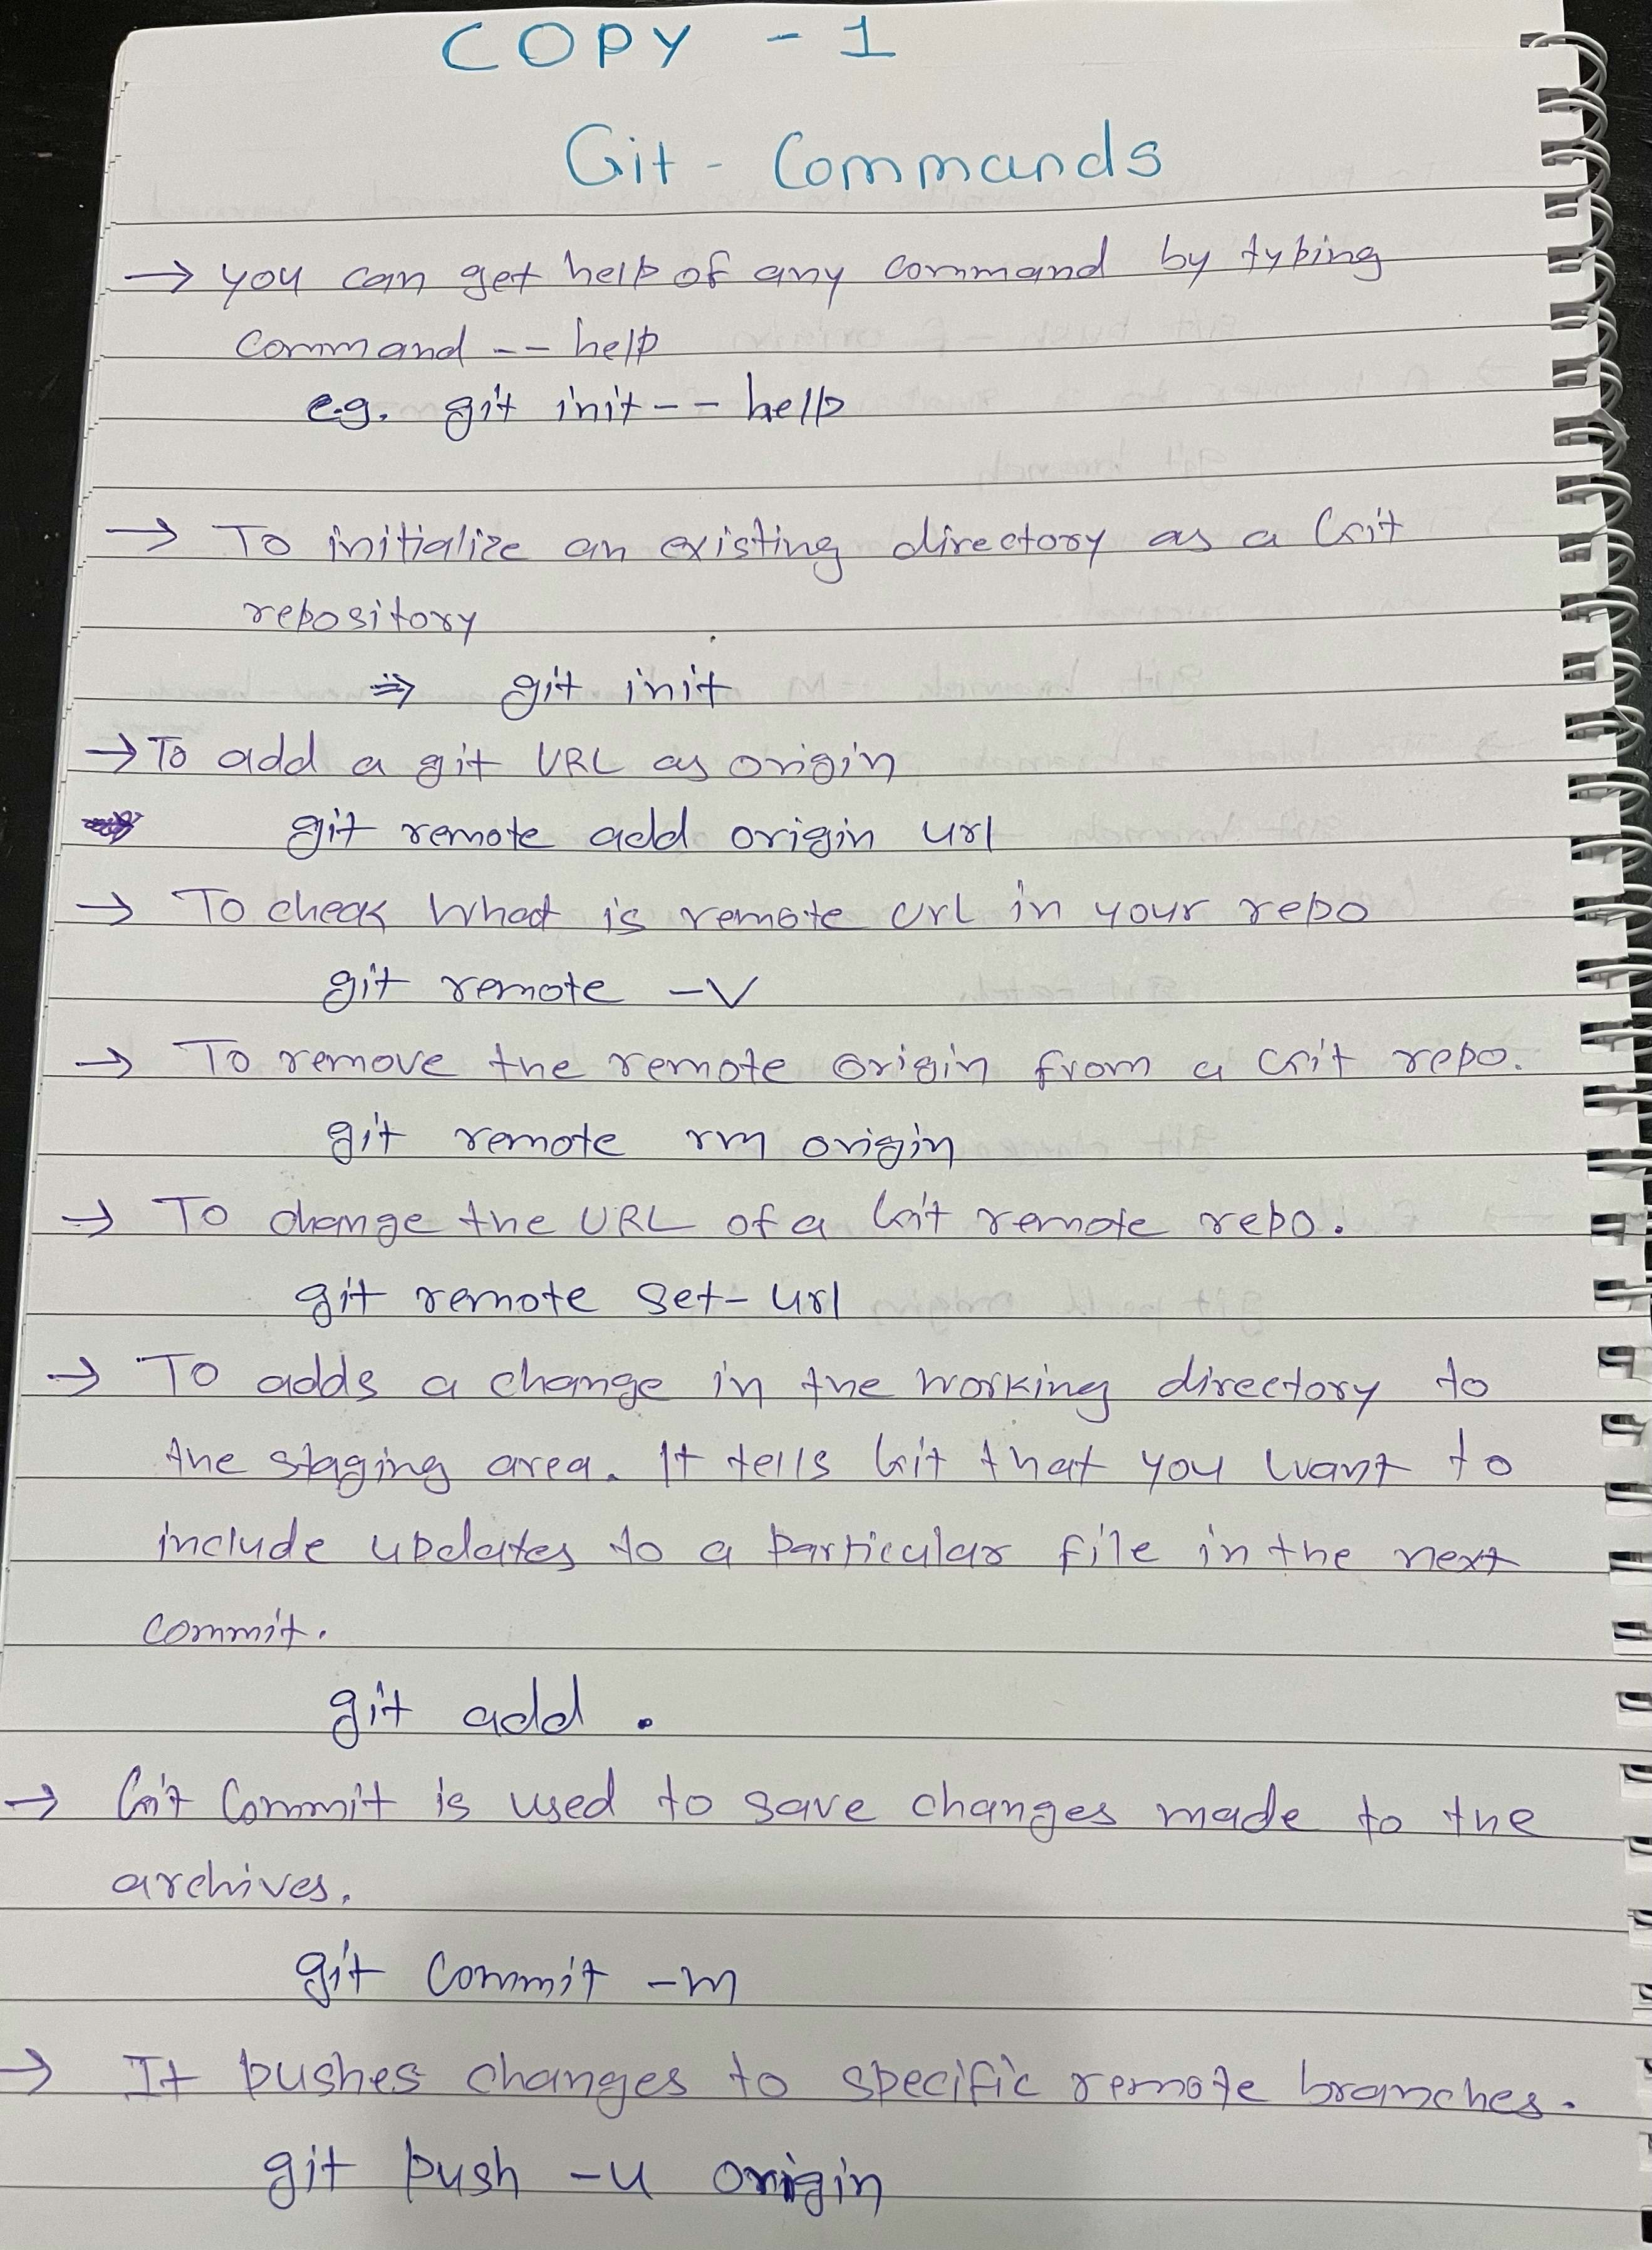 COPY - 1
Git - Commands
→ you can get help of any command by typing
command -- help
e.g. git init -- help
→ To initialize an existing directory as a Git
repository
⇒ git init
→ To add a git URL as origin
git remote add origin url
→ To check what is remote url in your repo
git remote -v
→ To remove the remote origin from a Git repo.
git remote rm origin
→ To change the URL of a Git remote repo.
git remote set-url
→ To adds a change in the working directory to
the staging area. It tells Git that you want to
include updates to a particular file in the next
commit.
git add .
→ Git Commit is used to save changes made to the
archives.
git commit -m
→ It pushes changes to specific remote branches.
git push -u origin